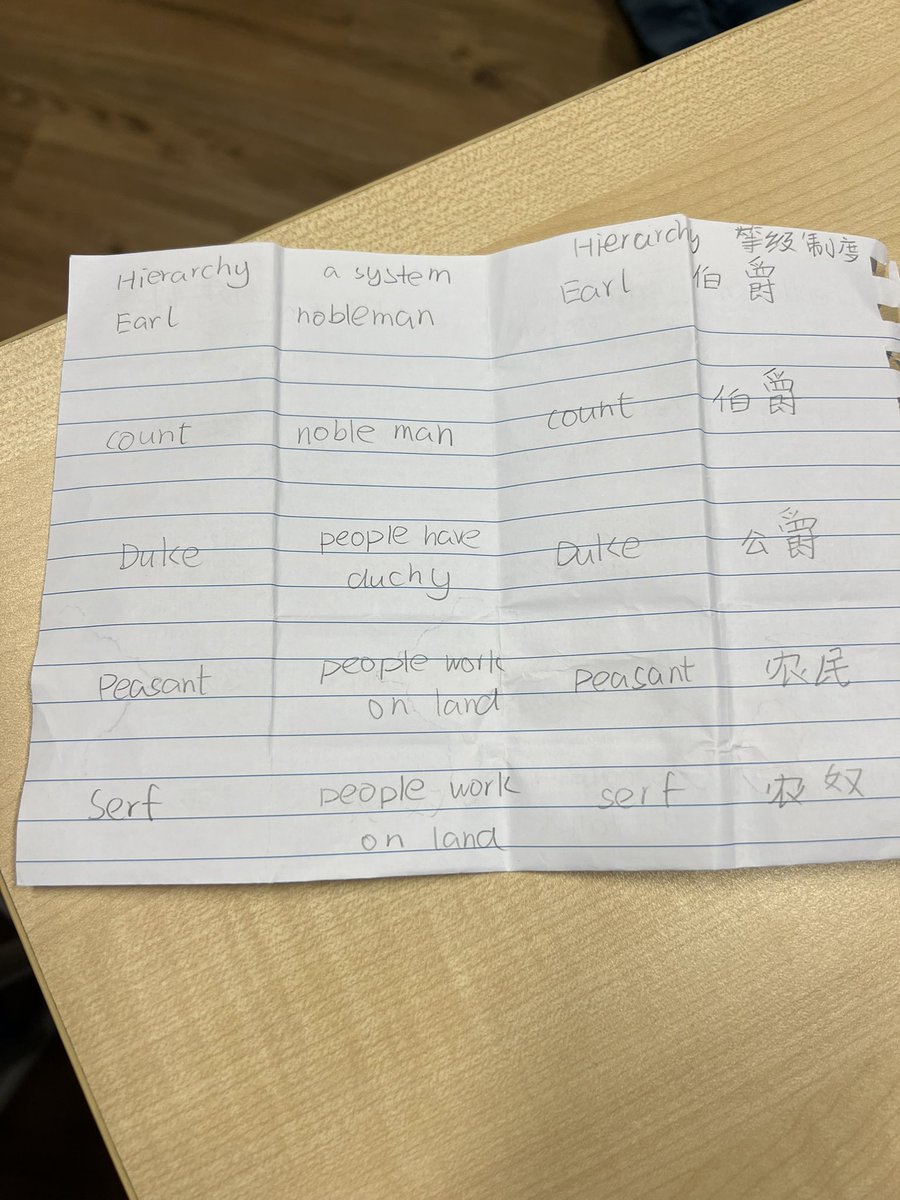 Hierarchy a system Hierarchy 等级制度
Earl nobleman Earl 伯爵
count noble man count 伯爵
Duke people have duchy Duke 公爵
Peasant people work on land Peasant 农民
Serf people work on land serf 农奴